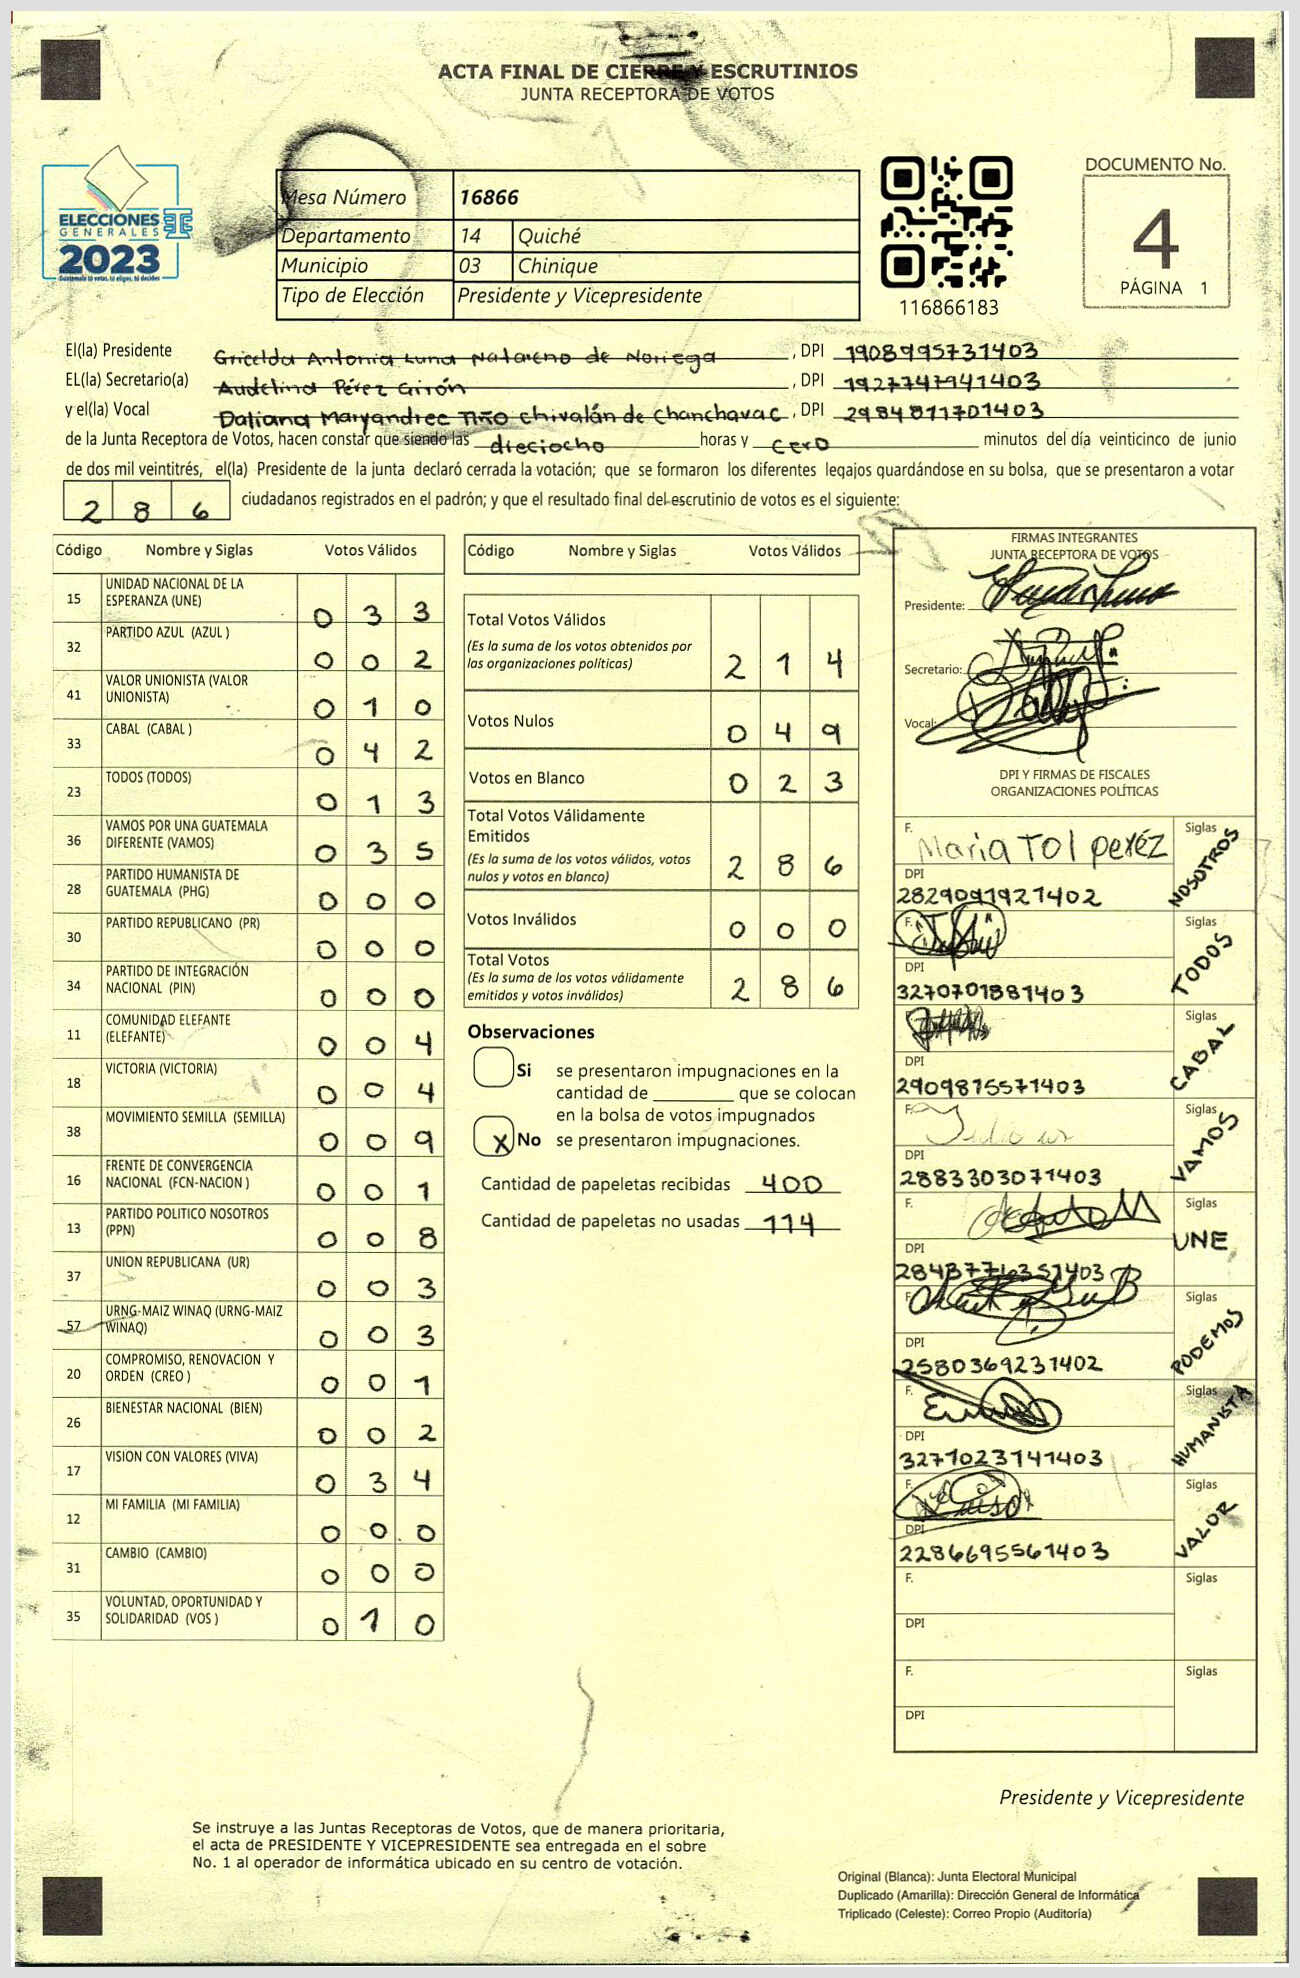 ACTA FINAL DE CIERRE Y ESCRUTINIOS
JUNTA RECEPTORA DE VOTOS
ELECCIONES
GENERALES
2023
Guatemala tú votas, tú eliges, tú decides
Mesa Número 16866
Departamento 14 Quiché
Municipio 03 Chinique
Tipo de Elección Presidente y Vicepresidente
116866183
DOCUMENTO No.
4
PÁGINA 1
El(la) Presidente Gricelda Antonia Luna Natareno de Noriega , DPI 1908995731403
EL(la) Secretario(a) Audelina Pérez Girón , DPI 1927747941403
y el(la) Vocal Daliana Maryandree Tiño Chivalán de Chanchavac , DPI 2984811701403
de la Junta Receptora de Votos, hacen constar que siendo las dieciocho horas y cero minutos del día veinticinco de junio
de dos mil veintitrés, el(la) Presidente de la junta declaró cerrada la votación; que se formaron los diferentes legajos guardándose en su bolsa, que se presentaron a votar
286 ciudadanos registrados en el padrón; y que el resultado final del escrutinio de votos es el siguiente:
Código Nombre y Siglas Votos Válidos
15 UNIDAD NACIONAL DE LA ESPERANZA (UNE) 0 3 3
32 PARTIDO AZUL (AZUL ) 0 0 2
41 VALOR UNIONISTA (VALOR UNIONISTA) 0 1 0
33 CABAL (CABAL ) 0 4 2
23 TODOS (TODOS) 0 1 3
36 VAMOS POR UNA GUATEMALA DIFERENTE (VAMOS) 0 3 5
28 PARTIDO HUMANISTA DE GUATEMALA (PHG) 0 0 0
30 PARTIDO REPUBLICANO (PR) 0 0 0
34 PARTIDO DE INTEGRACIÓN NACIONAL (PIN) 0 0 0
11 COMUNIDAD ELEFANTE (ELEFANTE) 0 0 4
18 VICTORIA (VICTORIA) 0 0 4
38 MOVIMIENTO SEMILLA (SEMILLA) 0 0 9
16 FRENTE DE CONVERGENCIA NACIONAL (FCN-NACION ) 0 0 1
13 PARTIDO POLITICO NOSOTROS (PPN) 0 0 8
37 UNION REPUBLICANA (UR) 0 0 3
57 URNG-MAIZ WINAQ (URNG-MAIZ WINAQ) 0 0 3
20 COMPROMISO, RENOVACION Y ORDEN (CREO ) 0 0 1
26 BIENESTAR NACIONAL (BIEN) 0 0 2
17 VISION CON VALORES (VIVA) 0 3 4
12 MI FAMILIA (MI FAMILIA) 0 0 0
31 CAMBIO (CAMBIO) 0 0 0
35 VOLUNTAD, OPORTUNIDAD Y SOLIDARIDAD (VOS ) 0 1 0
Código Nombre y Siglas Votos Válidos
Total Votos Válidos
(Es la suma de los votos obtenidos por
las organizaciones políticas) 2 1 4
Votos Nulos 0 4 9
Votos en Blanco 0 2 3
Total Votos Válidamente
Emitidos
(Es la suma de los votos válidos, votos
nulos y votos en blanco) 2 8 6
Votos Inválidos 0 0 0
Total Votos
(Es la suma de los votos válidamente
emitidos y votos inválidos) 2 8 6
Observaciones
Si se presentaron impugnaciones en la
cantidad de ________ que se colocan
en la bolsa de votos impugnados
X No se presentaron impugnaciones.
Cantidad de papeletas recibidas 400
Cantidad de papeletas no usadas 114
FIRMAS INTEGRANTES
JUNTA RECEPTORA DE VOTOS
Presidente:
Secretario:
Vocal:
DPI Y FIRMAS DE FISCALES
ORGANIZACIONES POLÍTICAS
F. Maria Tol peréz Siglas NOSOTROS
DPI
2829091921402
F. Siglas TODOS
DPI
3270701881403
F. Siglas CABAL
DPI
2909875571403
F. Siglas VAMOS
DPI
2883303071403
F. Siglas UNE
DPI
2843776351403
F. Siglas PODEMOS
DPI
2580369231402
F. Siglas HUMANISTA
DPI
3271023141403
F. Siglas VALOR
DPI
2286695561403
F. Siglas
DPI
F. Siglas
DPI
Presidente y Vicepresidente
Se instruye a las Juntas Receptoras de Votos, que de manera prioritaria,
el acta de PRESIDENTE Y VICEPRESIDENTE sea entregada en el sobre
No. 1 al operador de informática ubicado en su centro de votación.
Original (Blanca): Junta Electoral Municipal
Duplicado (Amarilla): Dirección General de Informática
Triplicado (Celeste): Correo Propio (Auditoría)